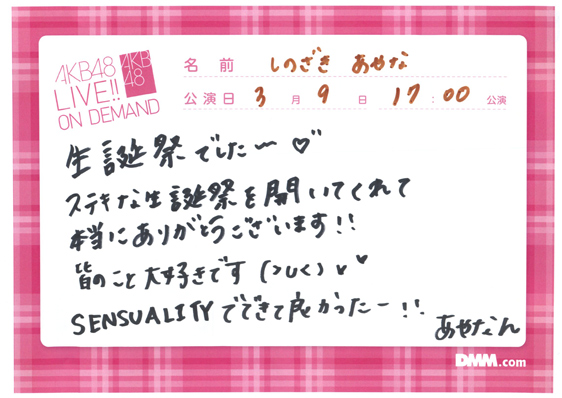 AKB48
LIVE!!
ON DEMAND
AKB
48
名前 しのざき あやな
公演日 3月9日 17:00 公演
生誕祭でしたー♡
ステキな生誕祭を開いてくれて
本当にありがとうございます!!
皆のこと大好きです (>し<) ♥♥
SENSUALITYでできて良かったー!!
あやなん
DMM.com